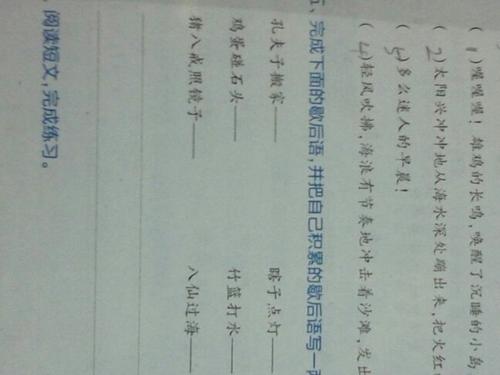 (1)喔喔喔！雄鸡的长鸣，唤醒了沉睡的小岛
(2)太阳兴冲冲地从海水深处蹦出来，把火红
(5)多么迷人的早晨！
(4)轻风吹拂，海浪有节奏地冲击着沙滩，发出
、完成下面的歇后语，并把自己积累的歇后语写一两
孔夫子搬家—— 瞎子点灯——
鸡蛋碰石头—— 竹篮打水——
猪八戒照镜子—— 八仙过海——
、阅读短文，完成练习。